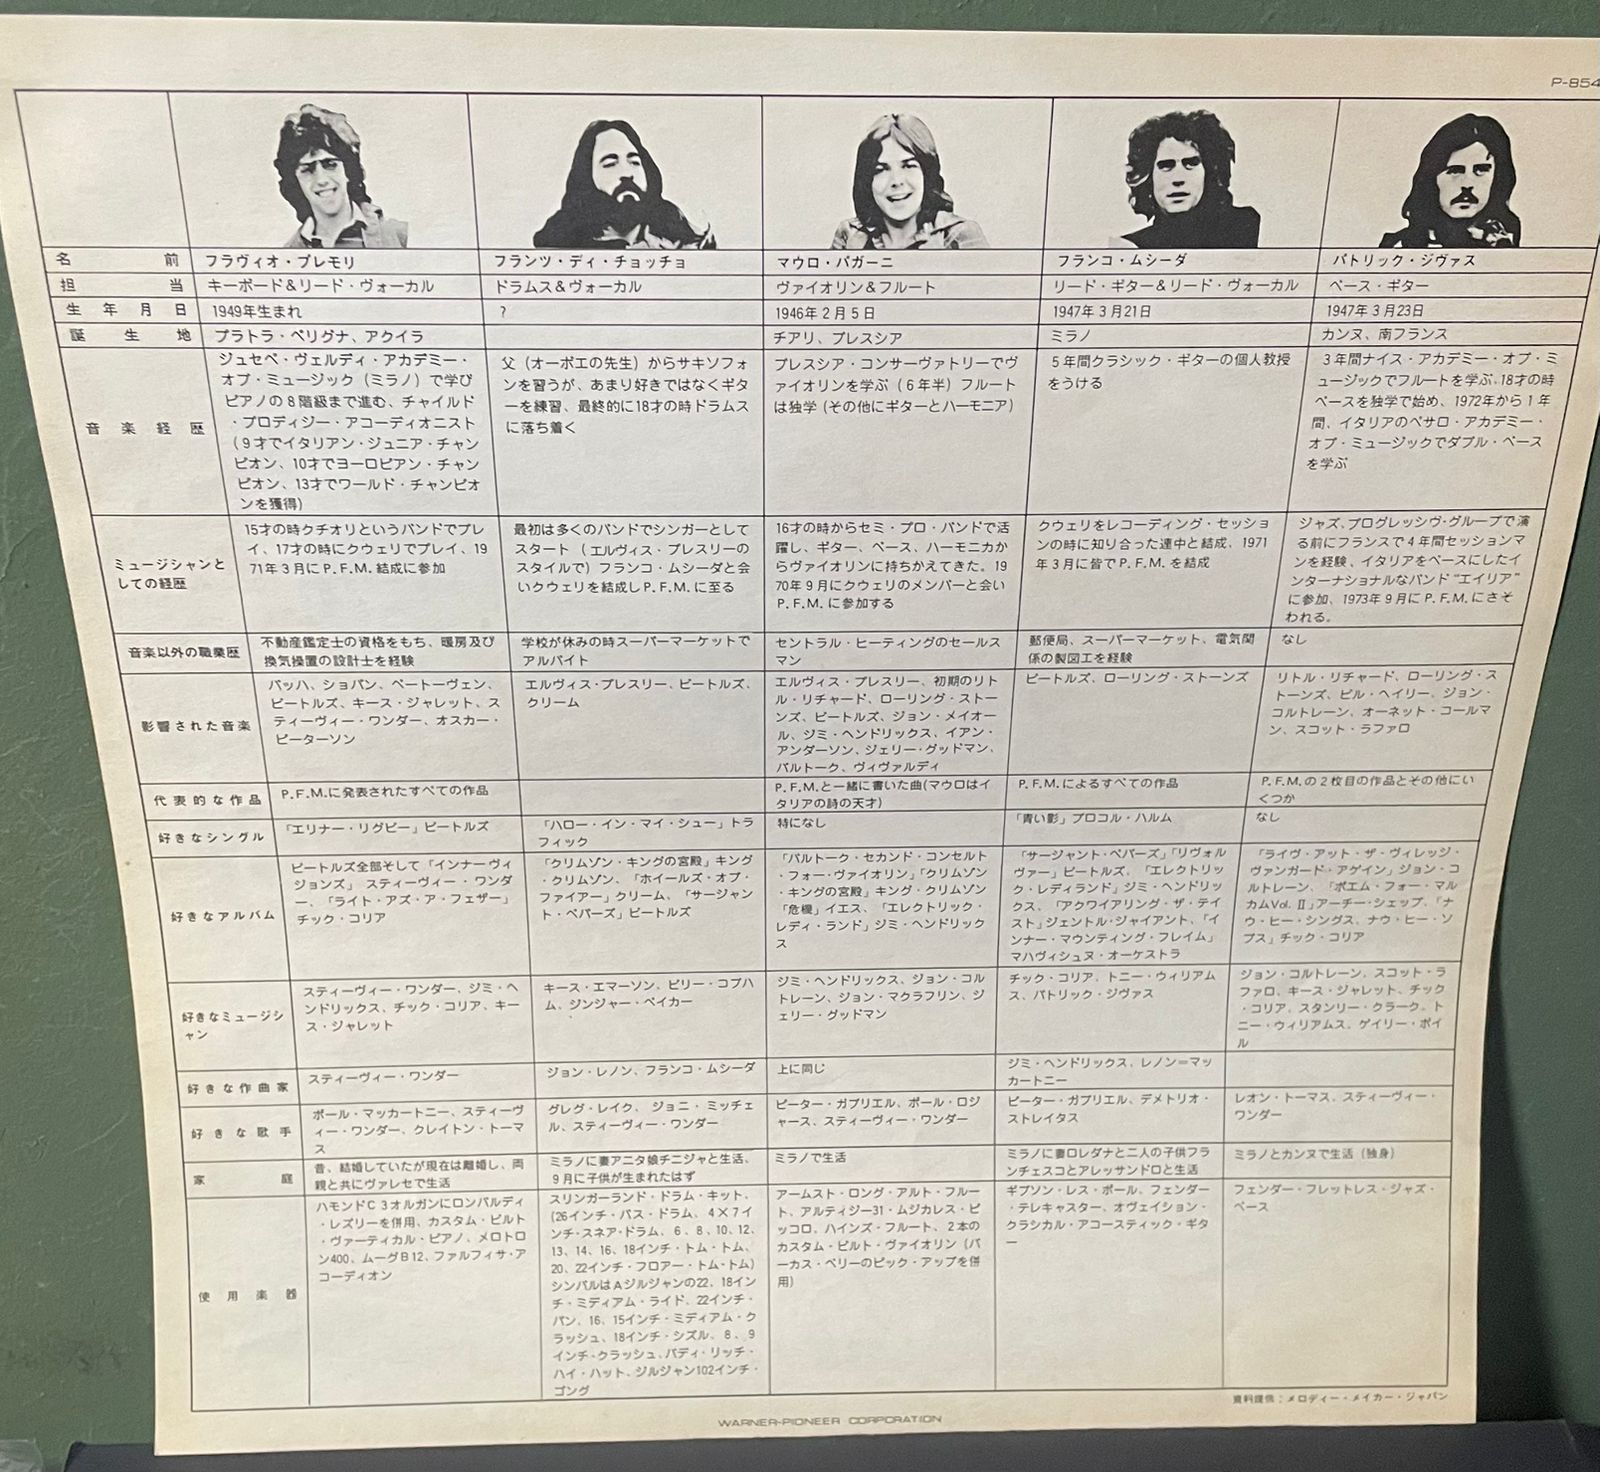 P-854
名前
フラヴィオ・プレモリ
フランツ・ディ・チョッチョ
マウロ・パガーニ
フランコ・ムシーダ
パトリック・ジヴァス
担当
キーボード&リード・ヴォーカル
ドラムス&ヴォーカル
ヴァイオリン&フルート
リード・ギター&リード・ヴォーカル
ベース・ギター
生年月日
1949年生まれ
?
1946年2月5日
1947年3月21日
1947年3月23日
誕生地
プラトラ・ペリグナ、アクイラ
チアリ、ブレスシア
ミラノ
カンヌ、南フランス
音楽経歴
ジュセペ・ヴェルディ・アカデミー・
オブ・ミュージック(ミラノ)で学び
ピアノの8階級まで進む、チャイルド
・プロディジー・アコーディオニスト
(9才でイタリアン・ジュニア・チャン
ピオン、10才でヨーロピアン・チャン
ピオン、13才でワールド・チャンピオ
ンを獲得)
父(オーボエの先生)からサキソフォ
ンを習うが、あまり好きではなくギタ
ーを練習、最終的に18才の時ドラムス
に落ち着く
ブレスシア・コンサーヴァトリーでヴ
ァイオリンを学ぶ(6年半)フルート
は独学(その他にギターとハーモニア)
5年間クラシック・ギターの個人教授
をうける
3年間ナイス・アカデミー・オブ・ミ
ュージックでフルートを学ぶ、18才の時
ベースを独学で始め、1972年から1年
間、イタリアのペサロ・アカデミー・
オブ・ミュージックでダブル・ベース
を学ぶ
ミュージシャンと
しての経歴
15才の時クチオリというバンドでプレ
イ、17才の時にクウェリでプレイ、19
71年3月にP.F.M.結成に参加
最初は多くのバンドでシンガーとして
スタート(エルヴィス・プレスリーの
スタイルで)フランコ・ムシーダと会
いクウェリを結成しP.F.M.に至る
16才の時からセミ・プロ・バンドで活
躍し、ギター、ベース、ハーモニカか
らヴァイオリンに持ちかえてきた。19
70年9月にクウェリのメンバーと会い
P.F.M.に参加する
クウェリをレコーディング・セッショ
ンの時に知り合った連中と結成、1971
年3月に皆でP.F.M.を結成
ジャズ、プログレッシヴ・グループで演
る前にフランスで4年間セッションマ
ンを経験、イタリアをベースにしたイ
ンターナショナルなバンド“エイリア”
に参加、1973年9月にP.F.M.にさそ
われる。
音楽以外の職業歴
不動産鑑定士の資格をもち、暖房及び
換気操置の設計士を経験
学校が休みの時スーパーマーケットで
アルバイト
セントラル・ヒーティングのセールス
マン
郵便局、スーパーマーケット、電気関
係の製図工を経験
なし
影響された音楽
バッハ、ショパン、ベートーヴェン、
ビートルズ、キース・ジャレット、ス
ティーヴィー・ワンダー、オスカー・
ピーターソン
エルヴィス・プレスリー、ビートルズ、
クリーム
エルヴィス・プレスリー、初期のリト
ル・リチャード、ローリング・ストー
ンズ、ビートルズ、ジョン・メイオー
ル、ジミ・ヘンドリックス、イアン・
アンダーソン、ジェリー・グッドマン、
バルトーク、ヴィヴァルディ
ビートルズ、ローリング・ストーンズ
リトル・リチャード、ローリング・ス
トーンズ、ビル・ヘイリー、ジョン・
コルトレーン、オーネット・コールマ
ン、スコット・ラファロ
代表的な作品
P.F.M.に発表されたすべての作品
P.F.M.と一緒に書いた曲(マウロはイ
タリアの詩の天才)
P.F.M.によるすべての作品
P.F.M.の2枚目の作品とその他にい
くつか
好きなシングル
「エリナー・リグビー」ビートルズ
「ハロー・イン・マイ・シュー」トラ
フィック
特になし
「青い影」プロコル・ハルム
なし
好きなアルバム
ビートルズ全部そして「インナーヴィ
ジョンズ」スティーヴィー・ワンダ
ー、「ライト・アズ・ア・フェザー」
チック・コリア
「クリムゾン・キングの宮殿」キング
・クリムゾン、「ホイールズ・オブ・
ファイアー」クリーム、「サージャン
ト・ペパーズ」ビートルズ
「バルトーク・セカンド・コンセルト
・フォー・ヴァイオリン」「クリムゾン
・キングの宮殿」キング・クリムゾン
「危機」イエス、「エレクトリック・
レディ・ランド」ジミ・ヘンドリック
ス
「サージャント・ペパーズ」「リヴォル
ヴァー」ビートルズ、「エレクトリッ
ク・レディランド」ジミ・ヘンドリッ
クス、「アクワイアリング・ザ・テイ
スト」ジェントル・ジャイアント、「イ
ンナー・マウンティング・フレイム」
マハヴィシュヌ・オーケストラ
「ライヴ・アット・ザ・ヴィレッジ・
ヴァンガード・アゲイン」ジョン・コ
ルトレーン、「ポエム・フォー・マル
カムVol.Ⅱ」アーチー・シェップ、「ナ
ウ・ヒー・シングス、ナウ・ヒー・ソ
ブス」チック・コリア
好きなミュージシ
ャン
スティーヴィー・ワンダー、ジミ・ヘ
ンドリックス、チック・コリア、キー
ス・ジャレット
キース・エマーソン、ビリー・コブハ
ム、ジンジャー・ベイカー
ジミ・ヘンドリックス、ジョン・コル
トレーン、ジョン・マクラフリン、ジ
ェリー・グッドマン
チック・コリア、トニー・ウィリアム
ス、パトリック・ジヴァス
ジョン・コルトレーン、スコット・ラ
ファロ、キース・ジャレット、チック
・コリア、スタンリー・クラーク、ト
ニー・ウィリアムス、ゲイリー・ボイ
ル
好きな作曲家
スティーヴィー・ワンダー
ジョン・レノン、フランコ・ムシーダ
上に同じ
ジミ・ヘンドリックス、レノン=マッ
カートニー
好きな歌手
ポール・マッカートニー、スティーヴ
ィー・ワンダー、クレイトン・トーマ
ス
グレグ・レイク、ジョニ・ミッチェ
ル、スティーヴィー・ワンダー
ピーター・ガブリエル、ポール・ロジ
ャース、スティーヴィー・ワンダー
ピーター・ガブリエル、デメトリオ・
ストレイタス
レオン・トーマス、スティーヴィー・
ワンダー
家庭
昔、結婚していたが現在は離婚し、両
親と共にヴァレセで生活
ミラノに妻アニタ娘チニジャと生活、
9月に子供が生まれたはず
ミラノで生活
ミラノに妻ロレダナと二人の子供フラ
ンチェスコとアレッサンドロと生活
ミラノとカンヌで生活(独身)
使用楽器
ハモンドC3オルガンにロンバルディ
・レズリーを併用、カスタム・ビルト
・ヴァーティカル・ピアノ、メロトロ
ン400、ムーグB12、ファルフィサ・ア
コーディオン
スリンガーランド・ドラム・キット、
(26インチ・バス・ドラム、4×7イ
ンチ・スネア・ドラム、6、8、10、12、
13、14、16、18インチ・トム・トム、
20、22インチ・フロアー・トム・トム)
シンバルはAジルジャンの22、18イン
チ・ミディアム・ライド、22インチ・
パン、16、15インチ・ミディアム・ク
ラッシュ、18インチ・シズル、8、9
インチ・クラッシュ、バディ・リッチ
・ハイ・ハット、ジルジャン102インチ・
ゴング
アームスト・ロング・アルト・フルー
ト、アルティジー31・ムジカレス・ピ
ッコロ、ハインズ・フルート、2本の
カスタム・ビルト・ヴァイオリン(バ
ーカス・ベリーのピック・アップを併
用)
ギブソン・レス・ポール、フェンダー
・テレキャスター、オヴェイション・
クラシカル・アコースティック・ギタ
ー
フェンダー・フレットレス・ジャズ・
ベース
資料提供:メロディー・メイカー・ジャパン
WARNER-PIONEER CORPORATION